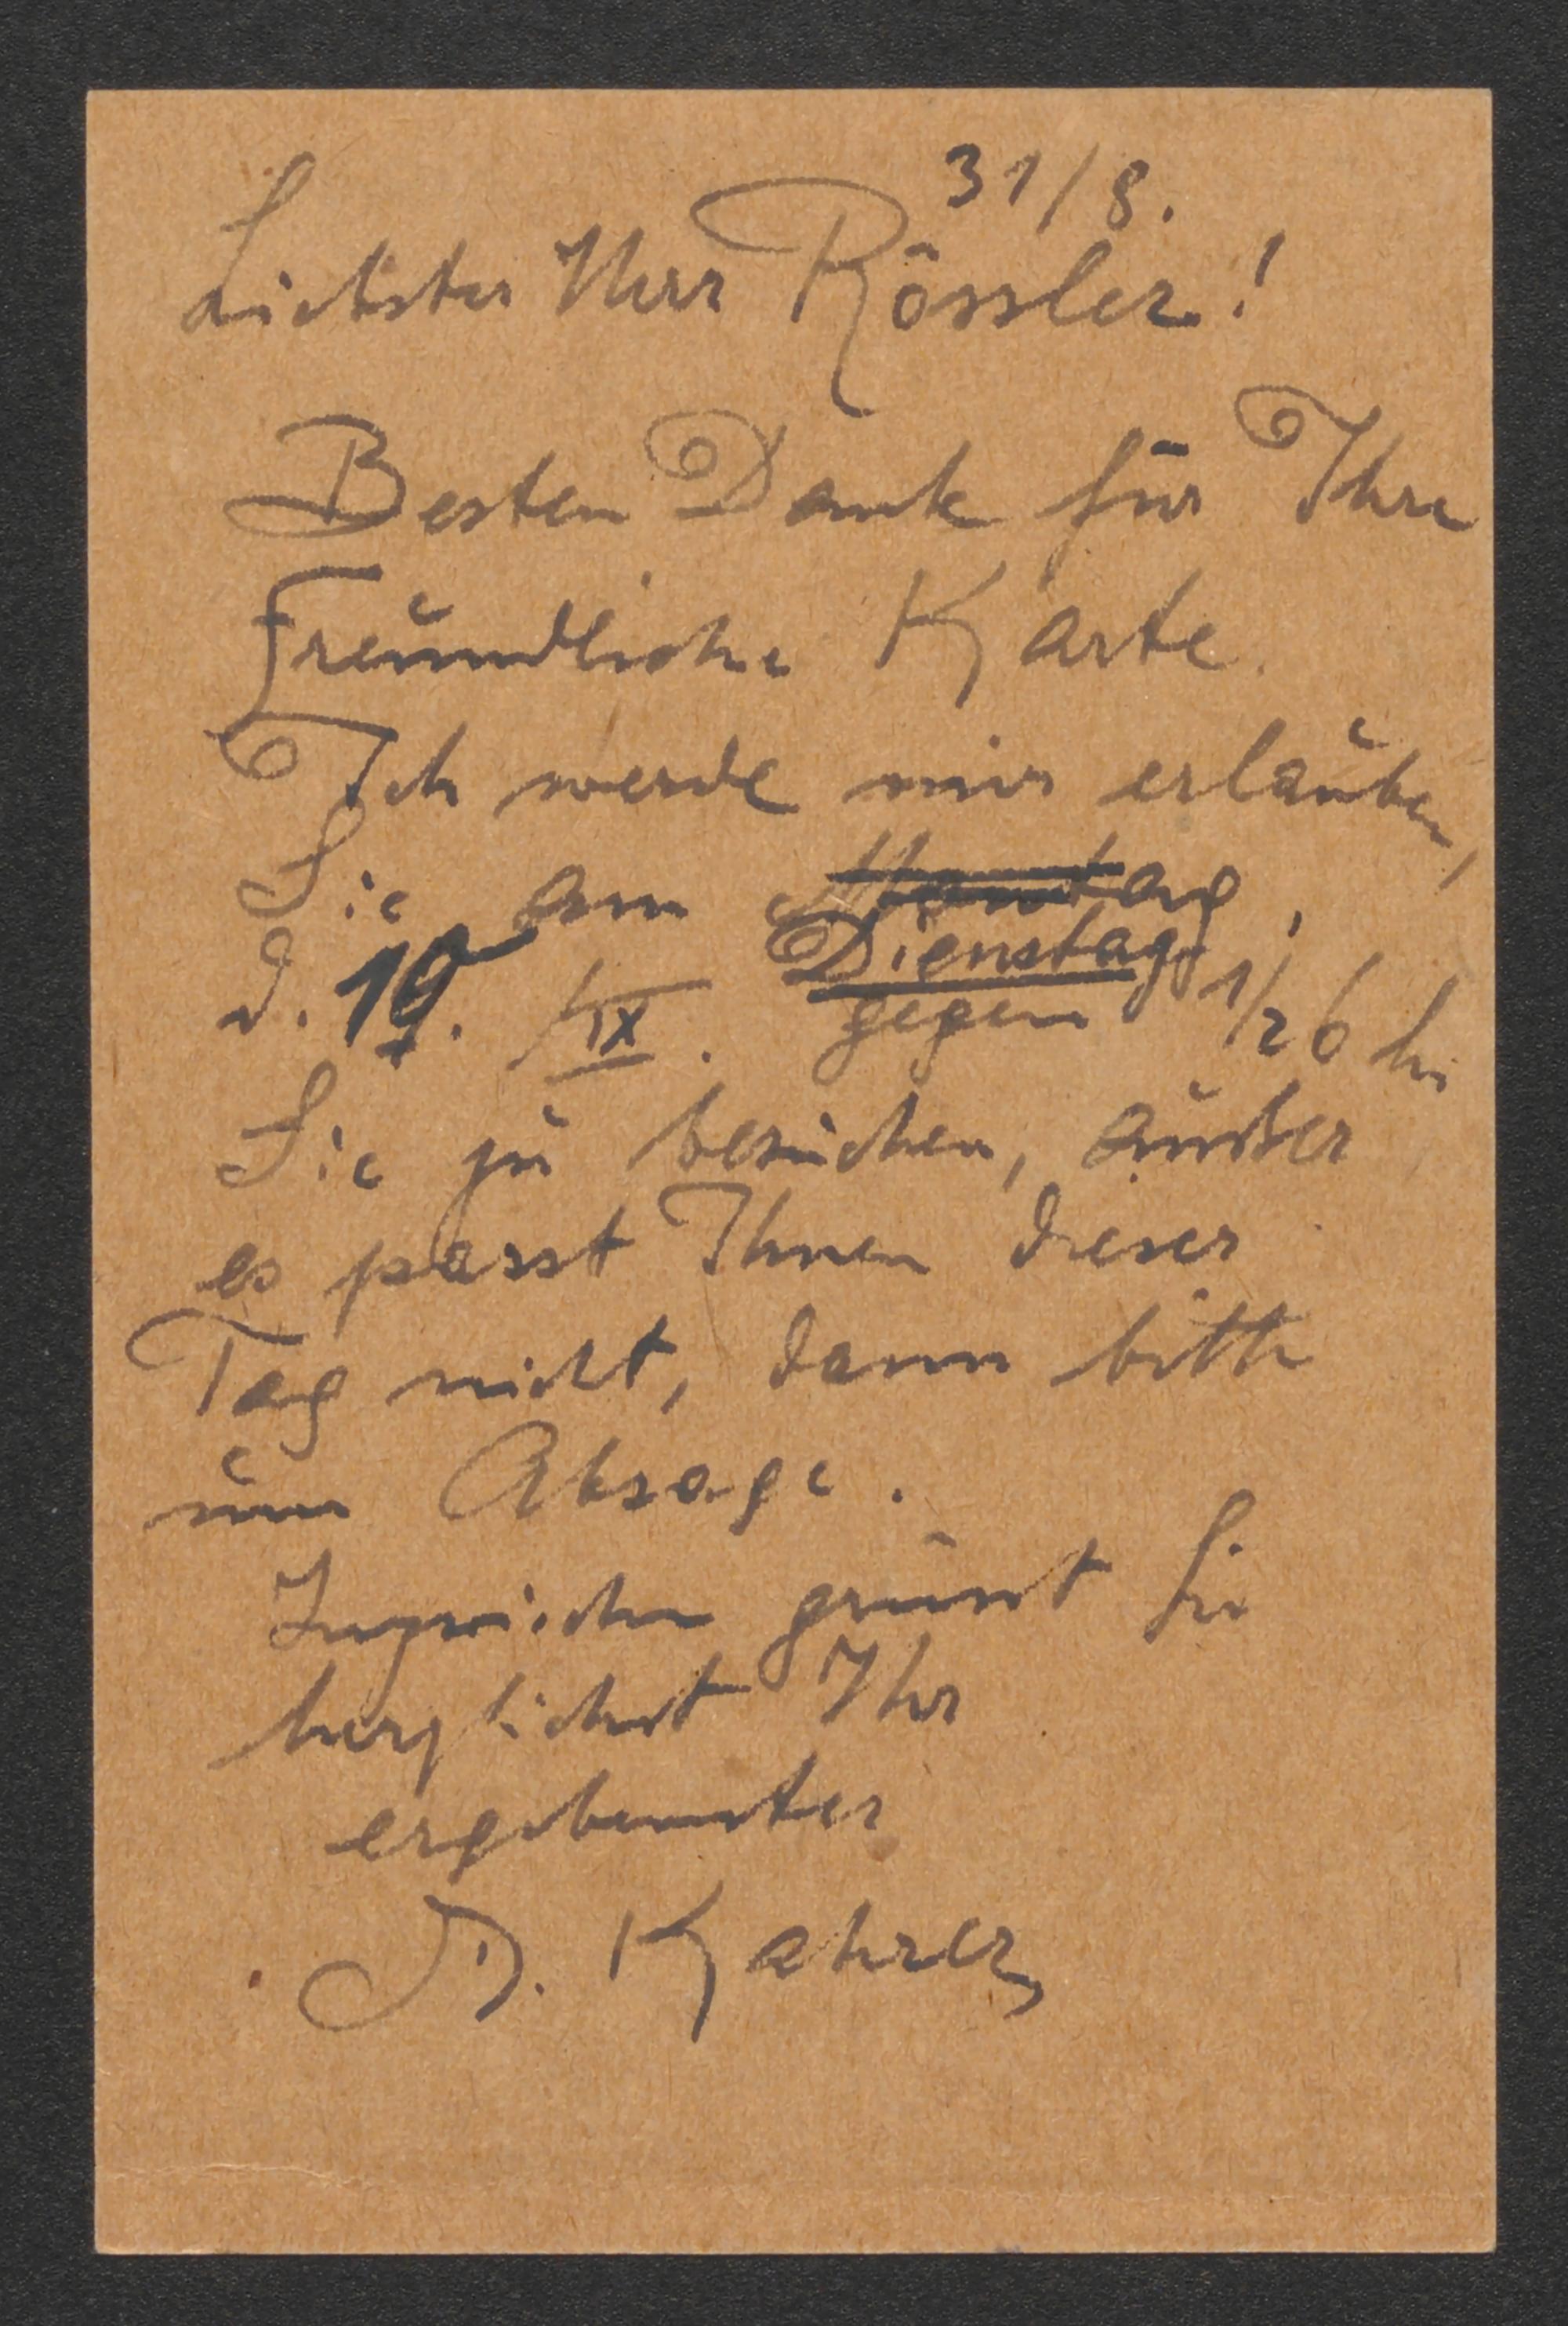 31/8.
Liebster Herr Rössler!
Besten Dank für Ihre
freundliche Karte.
Ich werde mir erlauben,
Sie am Montag,
Dienstag
d. 19. IX. gegen 1/2 6 h
Sie zu besuchen, außer
es passt Ihnen dieser
Tag nicht, dann bitte
um Absage.
Inzwischen grüsst Sie
herzlichst Ihr
ergebenster
D. Kahrer